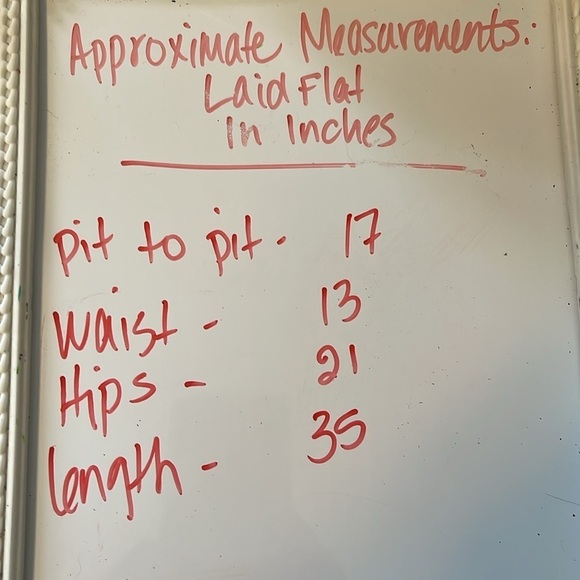 Approximate Measurements:
Laid Flat
In Inches
pit to pit - 17
Waist - 13
Hips - 21
length - 35